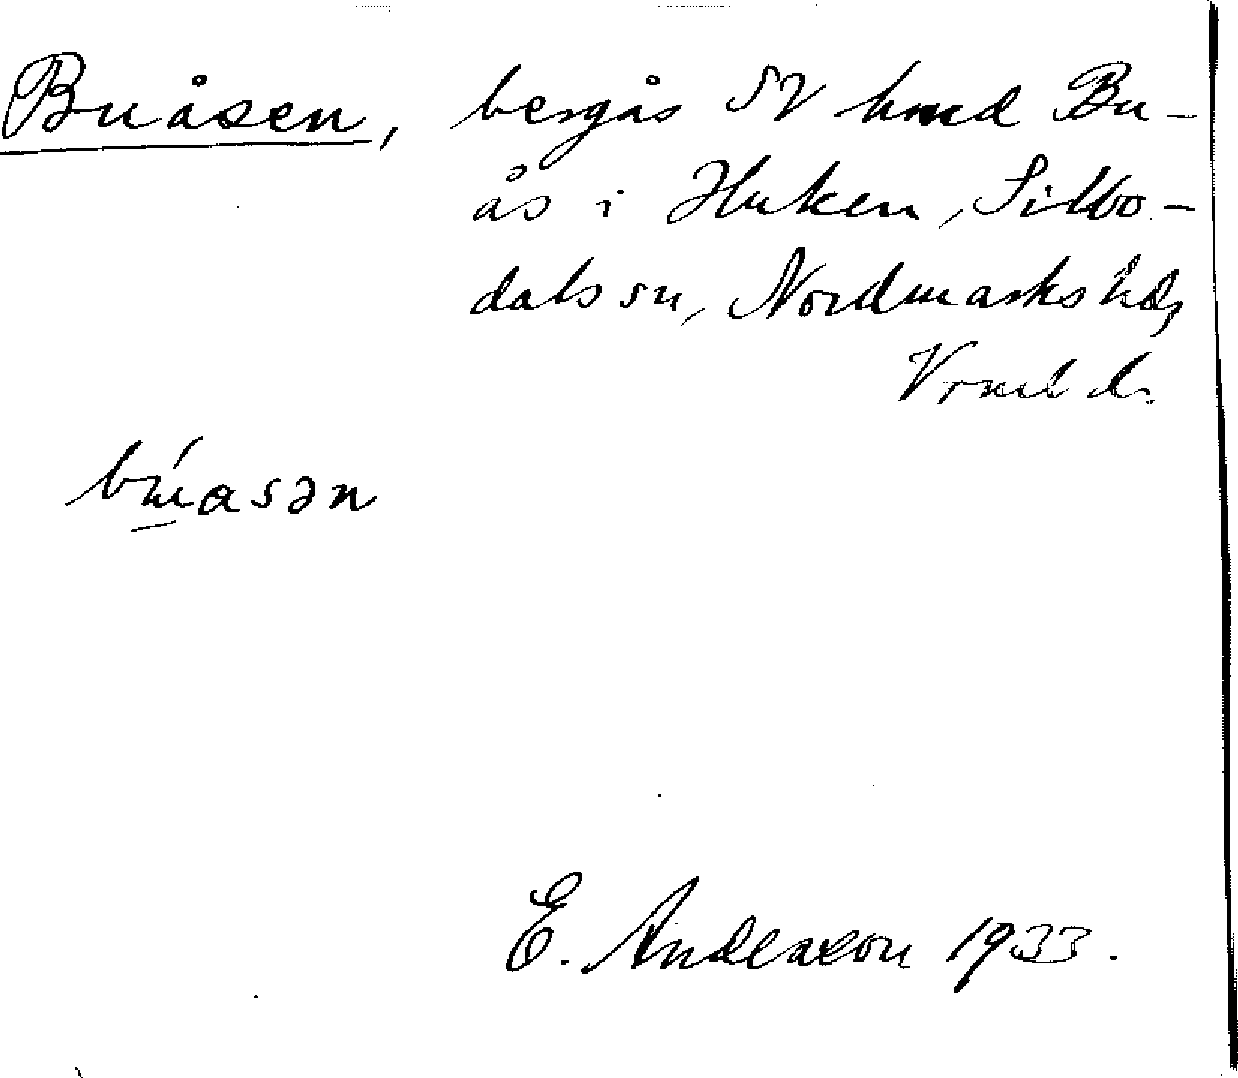 Buåsen, bergås SV hmd Bu-
ås i Huken, Silbo-
dals sn, Nordmarks hd,
Vrml d.
búasən
E. Anderson 1933.